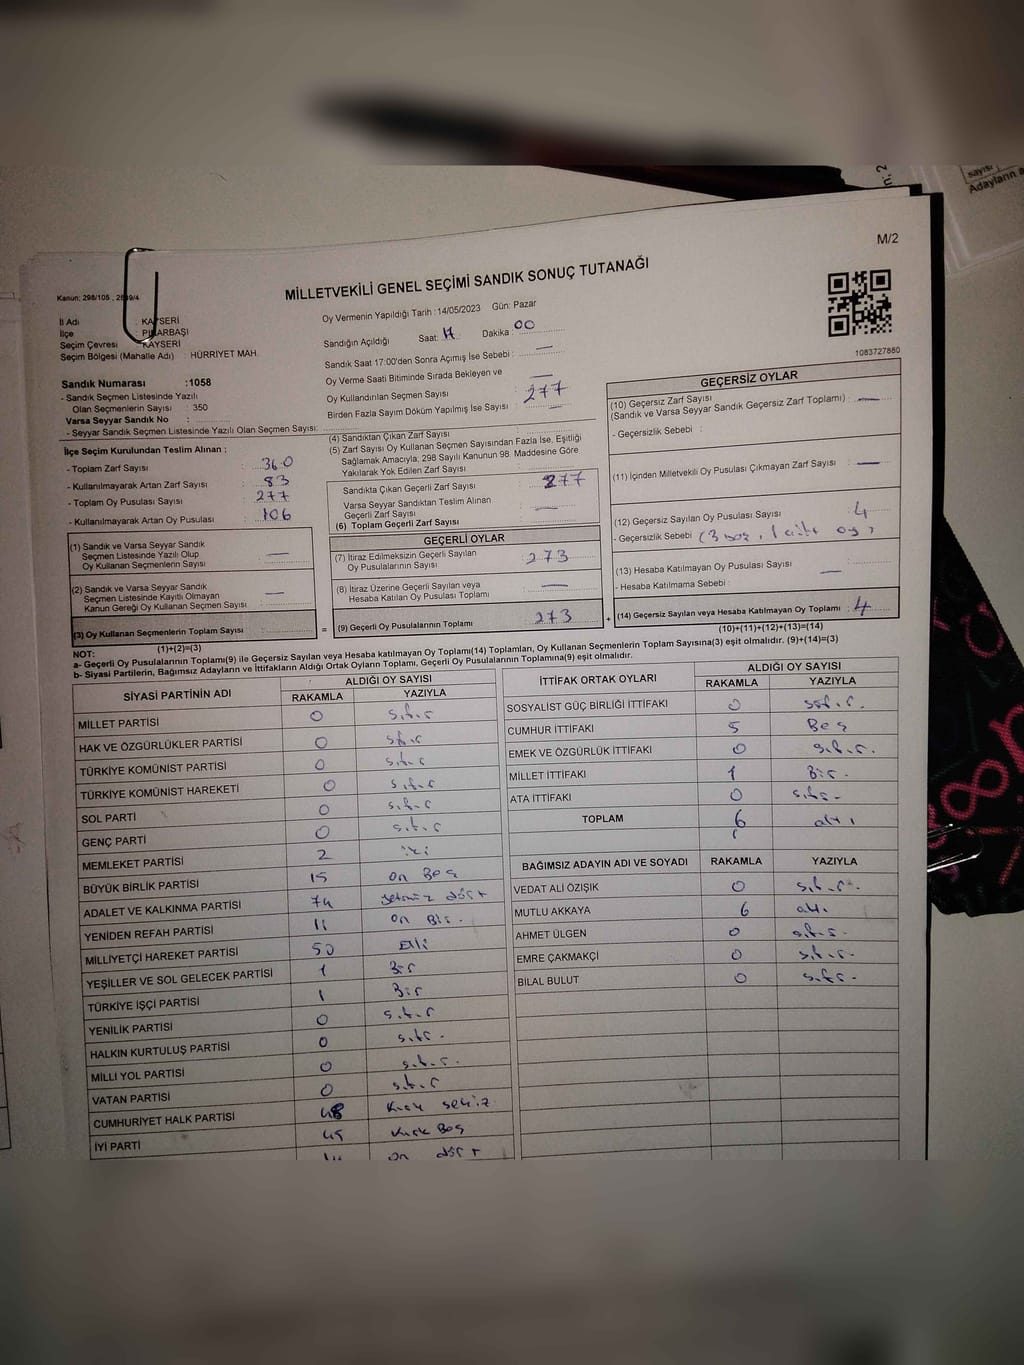 sayısı
Adayların a
n: 2
M/2
MİLLETVEKİLİ GENEL SEÇİMİ SANDIK SONUÇ TUTANAĞI
Kanun: 298/105 , 2839/4
İl Adı : KAYSERİ
İlçe : PINARBAŞI
Seçim Çevresi : KAYSERİ
Seçim Bölgesi (Mahalle Adı) : HÜRRİYET MAH.
Oy Vermenin Yapıldığı Tarih : 14/05/2023 Gün: Pazar
Sandığın Açıldığı Saat: 17 Dakika : 00
Sandık Saat 17:00'den Sonra Açımış İse Sebebi : —
Oy Verme Saati Bitiminde Sırada Bekleyen ve
Oy Kullandırılan Seçmen Sayısı : —
Birden Fazla Sayım Döküm Yapılmış İse Sayısı : —
1083727880
Sandık Numarası : 1058
- Sandık Seçmen Listesinde Yazılı
Olan Seçmenlerin Sayısı : 350
Varsa Seyyar Sandık No :
- Seyyar Sandık Seçmen Listesinde Yazılı Olan Seçmen Sayısı:
İlçe Seçim Kurulundan Teslim Alınan :
- Toplam Zarf Sayısı : 360
- Kullanılmayarak Artan Zarf Sayısı : 83
- Toplam Oy Pusulası Sayısı : 277
- Kullanılmayarak Artan Oy Pusulası : 106
(1) Sandık ve Varsa Seyyar Sandık
Seçmen Listesinde Yazılı Olup
Oy Kullanan Seçmenlerin Sayısı : —
(2) Sandık ve Varsa Seyyar Sandık
Seçmen Listesinde Kayıtlı Olmayan
Kanun Gereği Oy Kullanan Seçmen Sayısı : —
(3) Oy Kullanan Seçmenlerin Toplam Sayısı :
(1)+(2)=(3)
(4) Sandıktan Çıkan Zarf Sayısı : 277
(5) Zarf Sayısı Oy Kullanan Seçmen Sayısından Fazla İse, Eşitliği
Sağlamak Amacıyla; 298 Sayılı Kanunun 98. Maddesine Göre
Yakılarak Yok Edilen Zarf Sayısı :
Sandıkta Çıkan Geçerli Zarf Sayısı : 277
Varsa Seyyar Sandıktan Teslim Alınan
Geçerli Zarf Sayısı : —
(6) Toplam Geçerli Zarf Sayısı :
GEÇERLİ OYLAR
(7) İtiraz Edilmeksizin Geçerli Sayılan
Oy Pusulalarının Sayısı : 273
(8) İtiraz Üzerine Geçerli Sayılan veya
Hesaba Katılan Oy Pusulası Toplamı : —
= (9) Geçerli Oy Pusulalarının Toplamı : 273 +
GEÇERSİZ OYLAR
(10) Geçersiz Zarf Sayısı
(Sandık ve Varsa Seyyar Sandık Geçersiz Zarf Toplamı) : —
- Geçersizlik Sebebi :
(11) İçinden Milletvekili Oy Pusulası Çıkmayan Zarf Sayısı : —
(12) Geçersiz Sayılan Oy Pusulası Sayısı : 4
- Geçersizlik Sebebi : (3 boş, 1 çift oy)
(13) Hesaba Katılmayan Oy Pusulası Sayısı : —
- Hesaba Katılmama Sebebi :
(14) Geçersiz Sayılan veya Hesaba Katılmayan Oy Toplamı : 4
(10)+(11)+(12)+(13)=(14)
NOT:
a- Geçerli Oy Pusulalarının Toplamı(9) ile Geçersiz Sayılan veya Hesaba Katılmayan Oy Toplamı(14) Toplamları, Oy Kullanan Seçmenlerin Toplam Sayısına(3) eşit olmalıdır. (9)+(14)=(3)
b- Siyasi Partilerin, Bağımsız Adayların ve İttifakların Aldığı Ortak Oyların Toplamı, Geçerli Oy Pusulalarının Toplamına(9) eşit olmalıdır.
SİYASİ PARTİNİN ADI ALDIĞI OY SAYISI
RAKAMLA YAZIYLA
MİLLET PARTİSİ 0 sıfır
HAK VE ÖZGÜRLÜKLER PARTİSİ 0 sıfır
TÜRKİYE KOMÜNİST PARTİSİ 0 sıfır
TÜRKİYE KOMÜNİST HAREKETİ 0 sıfır
SOL PARTİ 0 sıfır
GENÇ PARTİ 0 sıfır
MEMLEKET PARTİSİ 2 iki
BÜYÜK BİRLİK PARTİSİ 15 on Beş
ADALET VE KALKINMA PARTİSİ 74 yetmiz dört
YENİDEN REFAH PARTİSİ 11 on Bir.
MİLLİYETÇİ HAREKET PARTİSİ 50 Elli
YEŞİLLER VE SOL GELECEK PARTİSİ 1 Bir
TÜRKİYE İŞÇİ PARTİSİ 1 Bir
YENİLİK PARTİSİ 0 sıfır
HALKIN KURTULUŞ PARTİSİ 0 sıfır.
MİLLİ YOL PARTİSİ 0 sıfır.
VATAN PARTİSİ 0 sıfır
CUMHURİYET HALK PARTİSİ 48 Kırk sekiz
İYİ PARTİ 45 Kırk Beş
on dört
İTTİFAK ORTAK OYLARI ALDIĞI OY SAYISI
RAKAMLA YAZIYLA
SOSYALİST GÜÇ BİRLİĞİ İTTİFAKI 0 sıfır.
CUMHUR İTTİFAKI 5 Beş
EMEK VE ÖZGÜRLÜK İTTİFAKI 0 sıfır.
MİLLET İTTİFAKI 1 Bir.
ATA İTTİFAKI 0 sıfır.
TOPLAM 6 altı
BAĞIMSIZ ADAYIN ADI VE SOYADI RAKAMLA YAZIYLA
VEDAT ALİ ÖZIŞIK 0 sıfır.
MUTLU AKKAYA 6 altı
AHMET ÜLGEN 0 sıfır.
EMRE ÇAKMAKÇİ 0 sıfır.
BİLAL BULUT 0 sıfır.